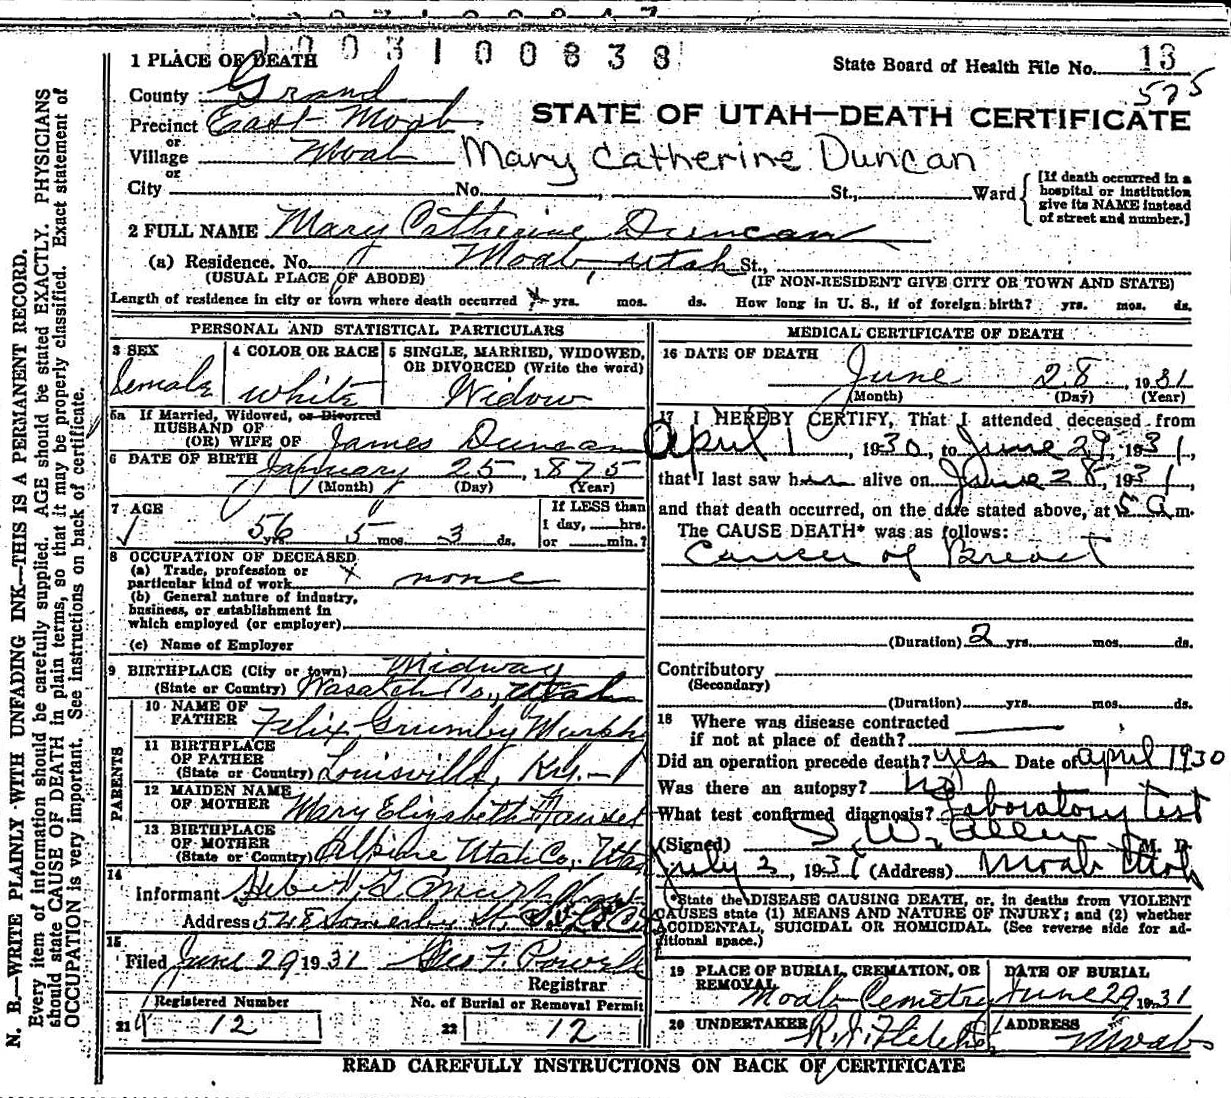 1003100838
1 PLACE OF DEATH
State Board of Health File No. 13
575
County Grand
STATE OF UTAH—DEATH CERTIFICATE
Precinct East Moab
or
Village Moab Mary Catherine Duncan
or
City No. St., Ward
[If death occurred in a hospital or institution give its NAME instead of street and number.]
2 FULL NAME Mary Catherine Duncan
(a) Residence. No. Moab, Utah St.,
(USUAL PLACE OF ABODE) (IF NON-RESIDENT GIVE CITY OR TOWN AND STATE)
Length of residence in city or town where death occurred yrs. mos. ds. How long in U. S., if of foreign birth? yrs. mos. ds.
PERSONAL AND STATISTICAL PARTICULARS
3 SEX
female
4 COLOR OR RACE
white
5 SINGLE, MARRIED, WIDOWED,
OR DIVORCED (Write the word)
Widow
5a If Married, Widowed, or Divorced
HUSBAND OF
(OR) WIFE OF James Duncan
6 DATE OF BIRTH January 25, 1875
(Month) (Day) (Year)
7 AGE
56 yrs. 5 mos. 3 ds.
If LESS than
1 day, hrs.
or min.?
8 OCCUPATION OF DECEASED
(a) Trade, profession or
particular kind of work x none
(b) General nature of industry,
business, or establishment in
which employed (or employer)
(c) Name of Employer
9 BIRTHPLACE (City or town) Midway
(State or Country) Wasatch Co., Utah
PARENTS
10 NAME OF
FATHER Felix Grumby Murph
11 BIRTHPLACE
OF FATHER
(State or Country) Louisville, Ky.
12 MAIDEN NAME
OF MOTHER Mary Elizabeth
13 BIRTHPLACE
OF MOTHER
(State or Country) Alpine Utah Co., Utah
14
Informant Murphy
Address 548 St.
15
Filed June 29 1931 Geo F. Powell
Registrar
Registered Number No. of Burial or Removal Permit
21 12 22 12
MEDICAL CERTIFICATE OF DEATH
16 DATE OF DEATH
June 28, 1931
(Month) (Day) (Year)
17 I HEREBY CERTIFY, That I attended deceased from
April 1, 1930, to June 29, 1931,
that I last saw her alive on June 28, 1931,
and that death occurred, on the date stated above, at 5 a m.
The CAUSE DEATH* was as follows:
Cancer of Breast
(Duration) 2 yrs. mos. ds.
Contributory
(Secondary)
(Duration) yrs. mos. ds.
18 Where was disease contracted
if not at place of death?
Did an operation precede death? yes Date of april 1930
Was there an autopsy? no
What test confirmed diagnosis? Laboratory test
(Signed) J. W. Allen M. D.
July 2, 1931 (Address) Moab Utah
*State the DISEASE CAUSING DEATH, or, in deaths from VIOLENT
CAUSES state (1) MEANS AND NATURE OF INJURY; and (2) whether
ACCIDENTAL, SUICIDAL OR HOMICIDAL. (See reverse side for ad-
ditional space.)
19 PLACE OF BURIAL, CREMATION, OR
REMOVAL
Moab Cemetry
DATE OF BURIAL
June 29 1931
20 UNDERTAKER R. J. Fletcher
ADDRESS
Moab
READ CAREFULLY INSTRUCTIONS ON BACK OF CERTIFICATE
N. B.—WRITE PLAINLY WITH UNFADING INK—THIS IS A PERMANENT RECORD.
Every item of information should be carefully supplied. AGE should be stated EXACTLY. PHYSICIANS
should state CAUSE OF DEATH in plain terms, so that it may be properly classified. Exact statement of
OCCUPATION is very important. See instructions on back of certificate.